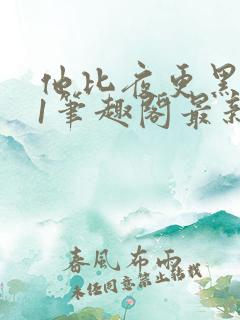 他比夜更黑
1笔趣阁最新
春風布雨
未经同意禁止转载